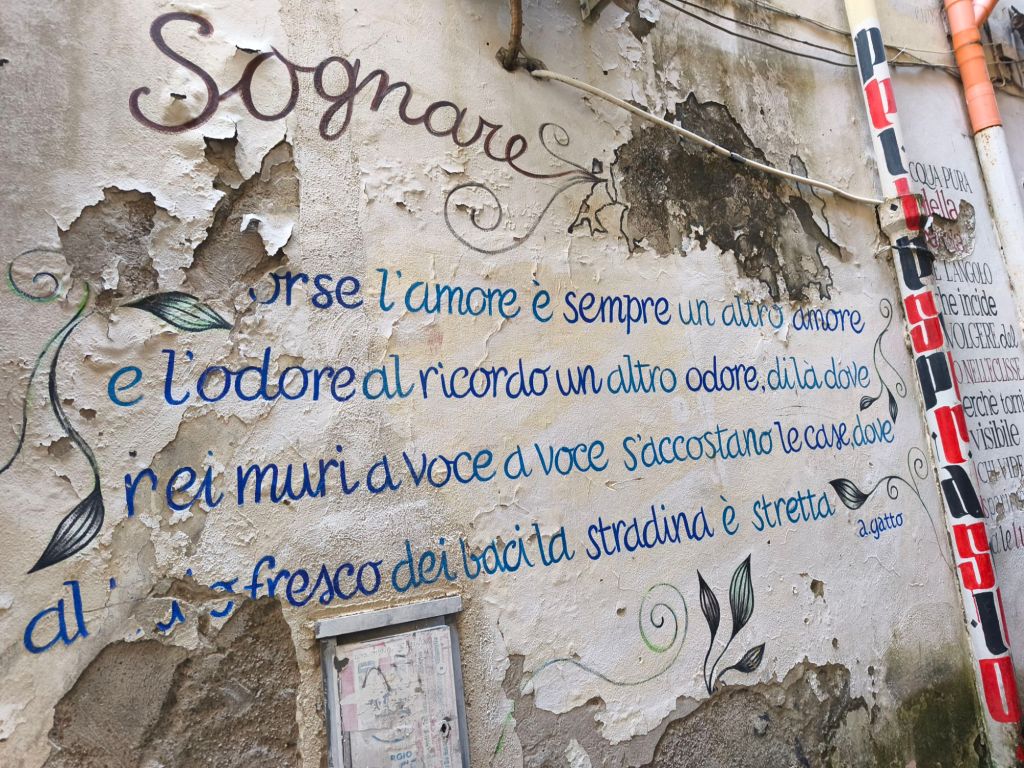 Sognare
orse l'amore è sempre un altro amore
e l'odore al ricordo un altro odore, di là dove
rei muri a voce a voce s'accostano le case, dove
al fresco dei baci la stradina è stretta
a.gatto
CQUA PURA
della
L'ANGOLO
che incide
VOLGERE dal
NELL'ECLISSE
erchè torni
visibile
CHI VIDE